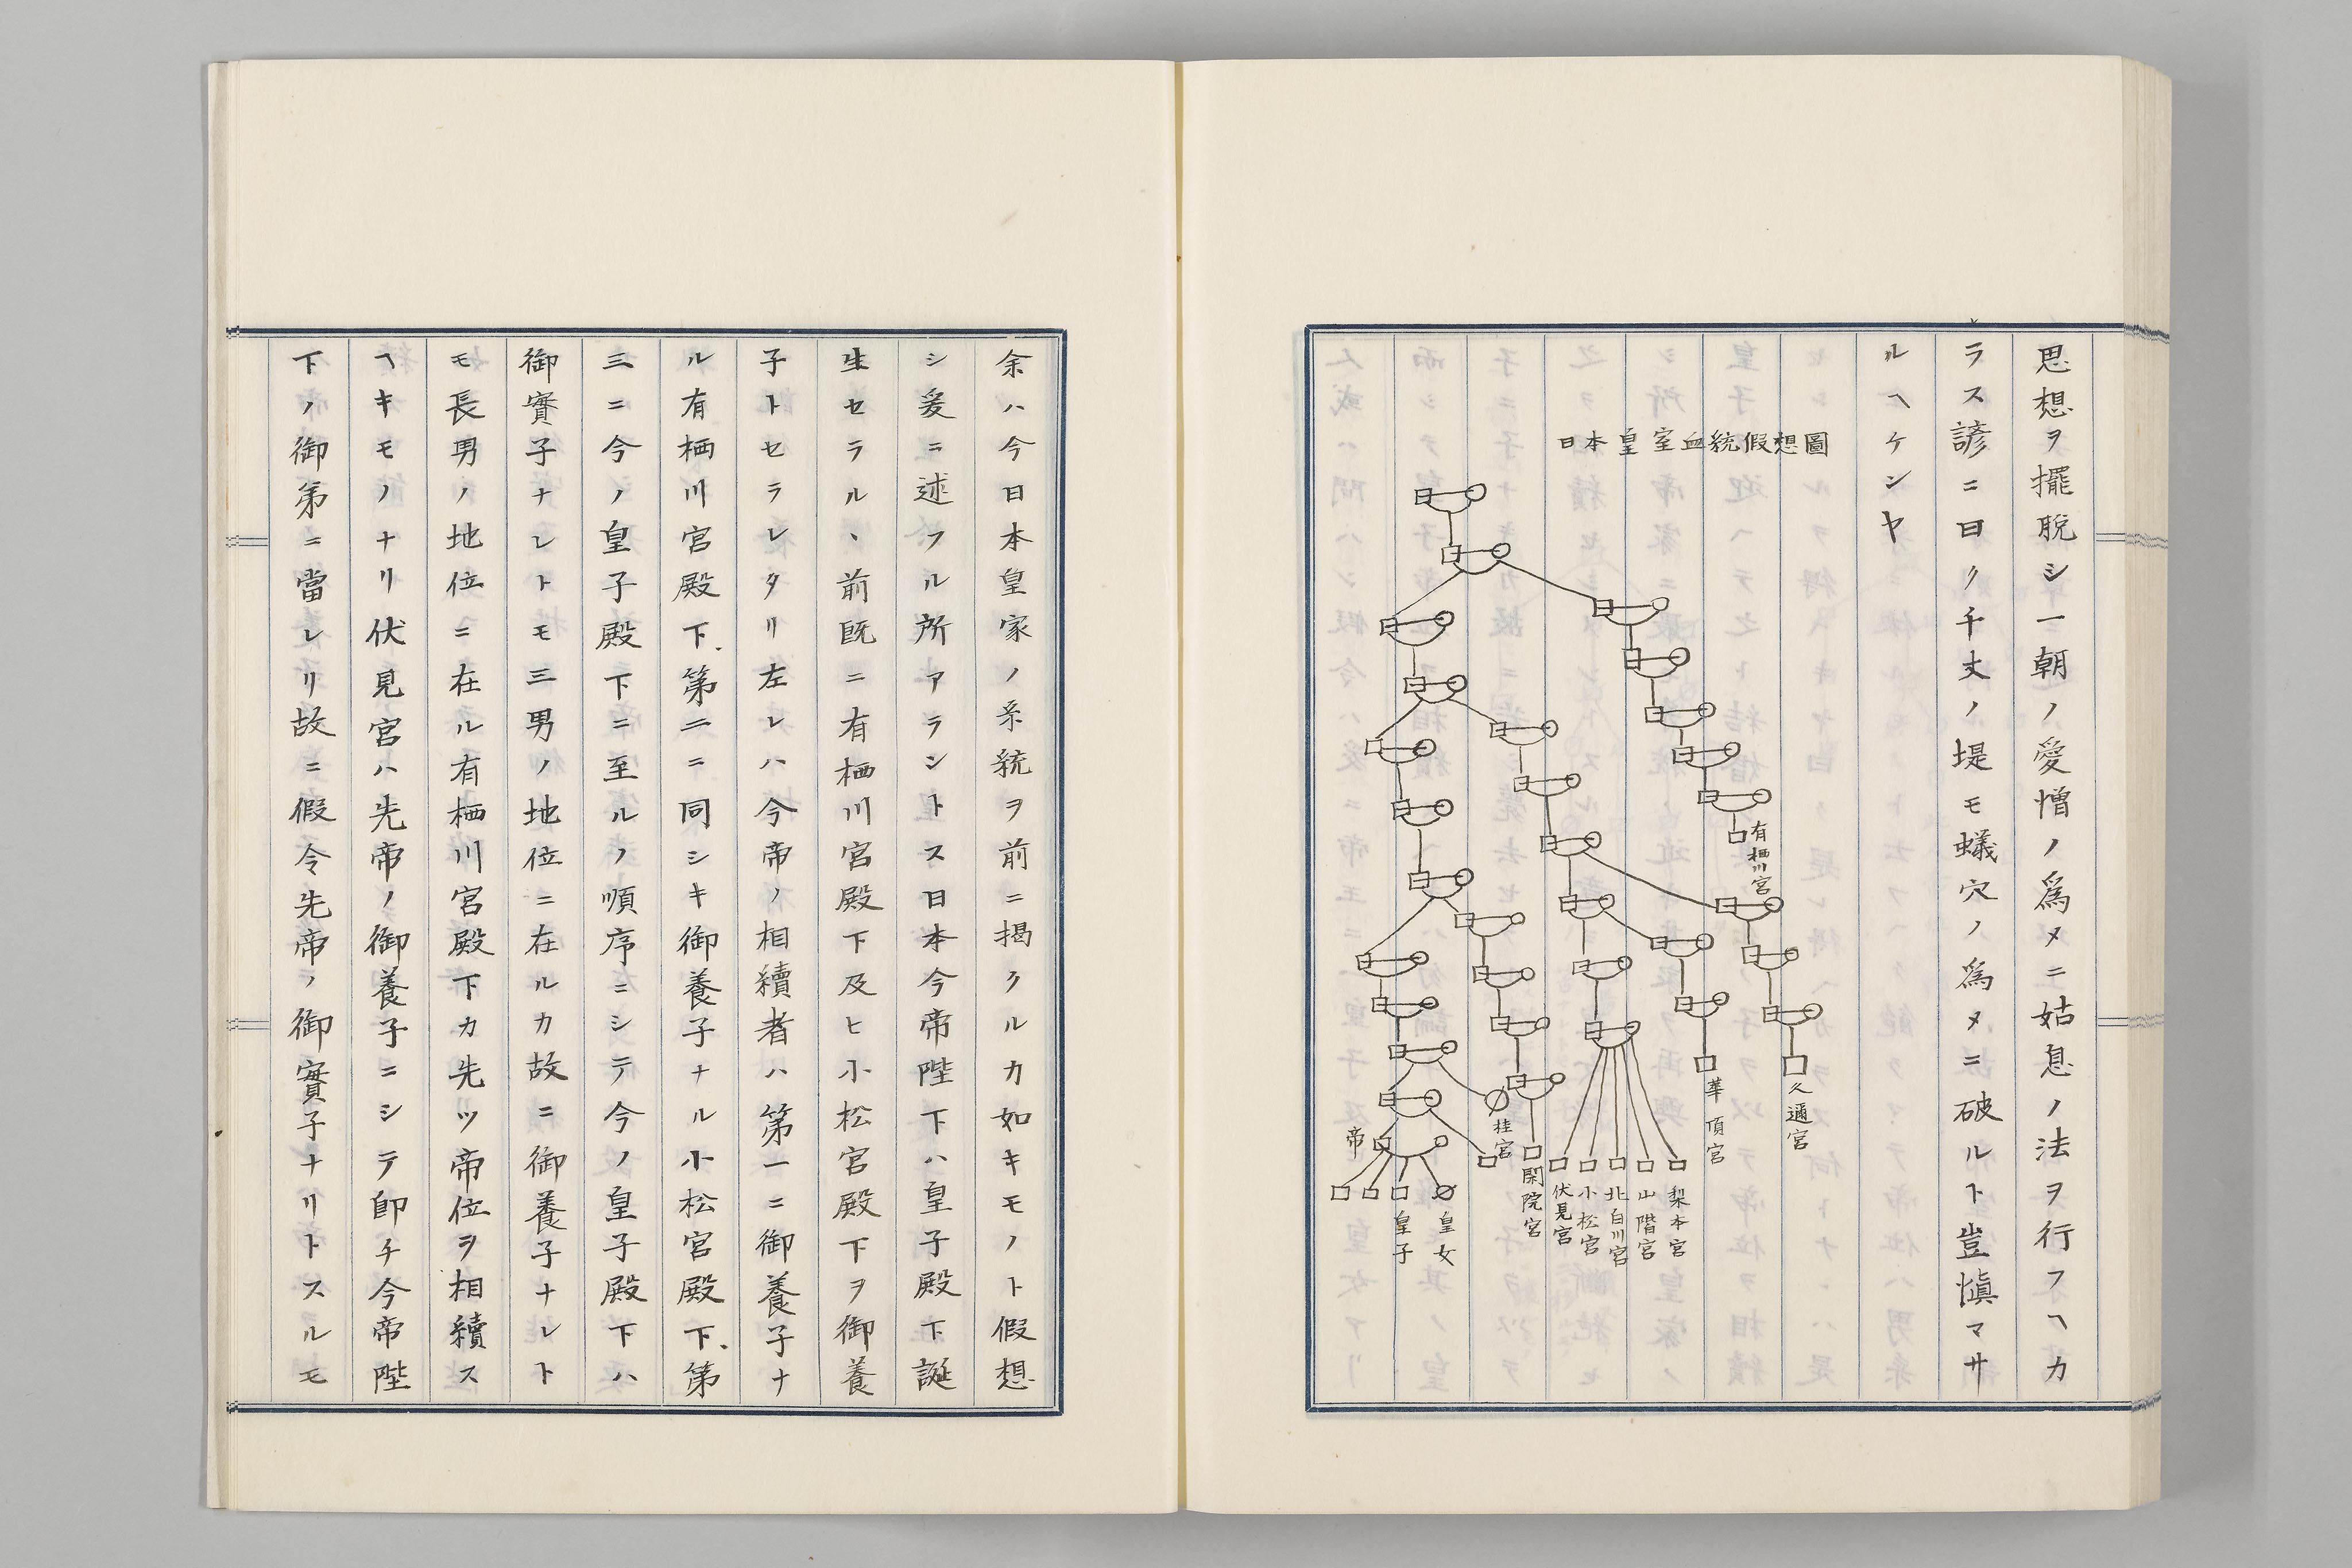 思想ヲ擺脱シ一朝ノ愛憎ノ為メニ姑息ノ法ヲ行フヘカ
ラス諺ニ曰ク千丈ノ堤モ蟻穴ノ為メニ破ルト豈愼マサ
ルヘケンヤ
日本皇室血統假想圖
有栖川宮
久邇宮
華頂宮
梨本宮
山階宮
北白川宮
小松宮
伏見宮
閑院宮
桂宮
皇女
皇子
帝
余ハ今日本皇家ノ系統ヲ前ニ掲クルカ如キモノト假想
シ爰ニ述フル所アラントス日本今帝陛下ハ皇子殿下誕
生セラルヽ前既ニ有栖川宮殿下及ヒ小松宮殿下ヲ御養
子トセラレタリ左レハ今帝ノ相續者ハ第一ニ御養子ナ
ル有栖川宮殿下第二ニ同シキ御養子ナル小松宮殿下第
三ニ今ノ皇子殿下ニ至ルノ順序ニシテ今ノ皇子殿下ハ
御實子ナレトモ三男ノ地位ニ在ルカ故ニ御養子ナレト
モ長男ノ地位ニ在ル有栖川宮殿下カ先ツ帝位ヲ相續ス
ヘキモノナリ伏見宮ハ先帝ノ御養子ニシテ即チ今帝陛
下ノ御第ニ當レリ故ニ假令先帝ノ御實子ナリトスルモ